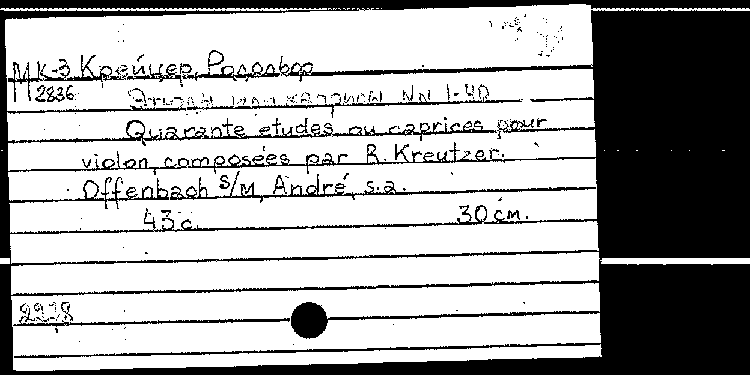 МК-3 Крейцер, Родольф
2836 Этюды или каприсы NN 1-40
Quarante etudes ou caprices pour
violon, composées par R. Kreutzer.
Offenbach s/M, André, s.a.
43 с. 30 см.
2278